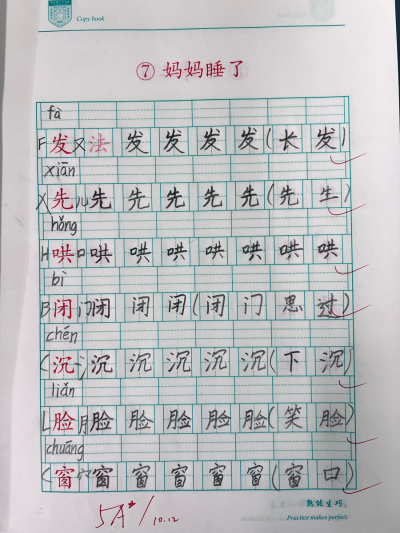 Copy book
⑦ 妈妈睡了
fà
F发又法发发发发(长发)
xiān
X先儿先先先先先(先生)
hǒng
H哄口哄哄哄哄哄哄哄
bì
B闭门闭闭闭(闭门思过)
chén
C沉氵沉沉沉沉沉(下沉)
liǎn
L脸月脸脸脸脸脸(笑脸)
chuāng
C窗穴窗窗窗窗窗(窗口)
熟能生巧
Practice makes perfect
5A* / 10.12